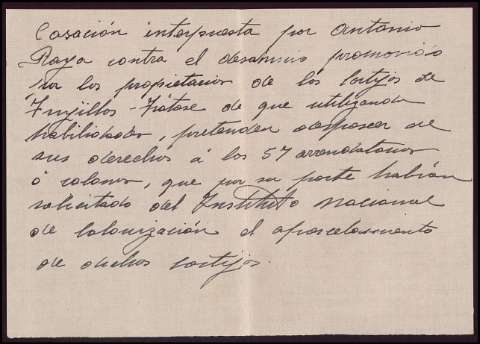 Casación interpuesta por Antonio
Raya contra el desahucio promovido
por los propietarios de los Cortijos de
Trujillos - Trátase de que utilizando
habilidades, pretenden desposeer de
sus derechos á los 57 arrendatarios
ó colonos, que por su parte habían
solicitado del Instituto Nacional
de Colonización el aparcelamiento
de dichos cortijos.